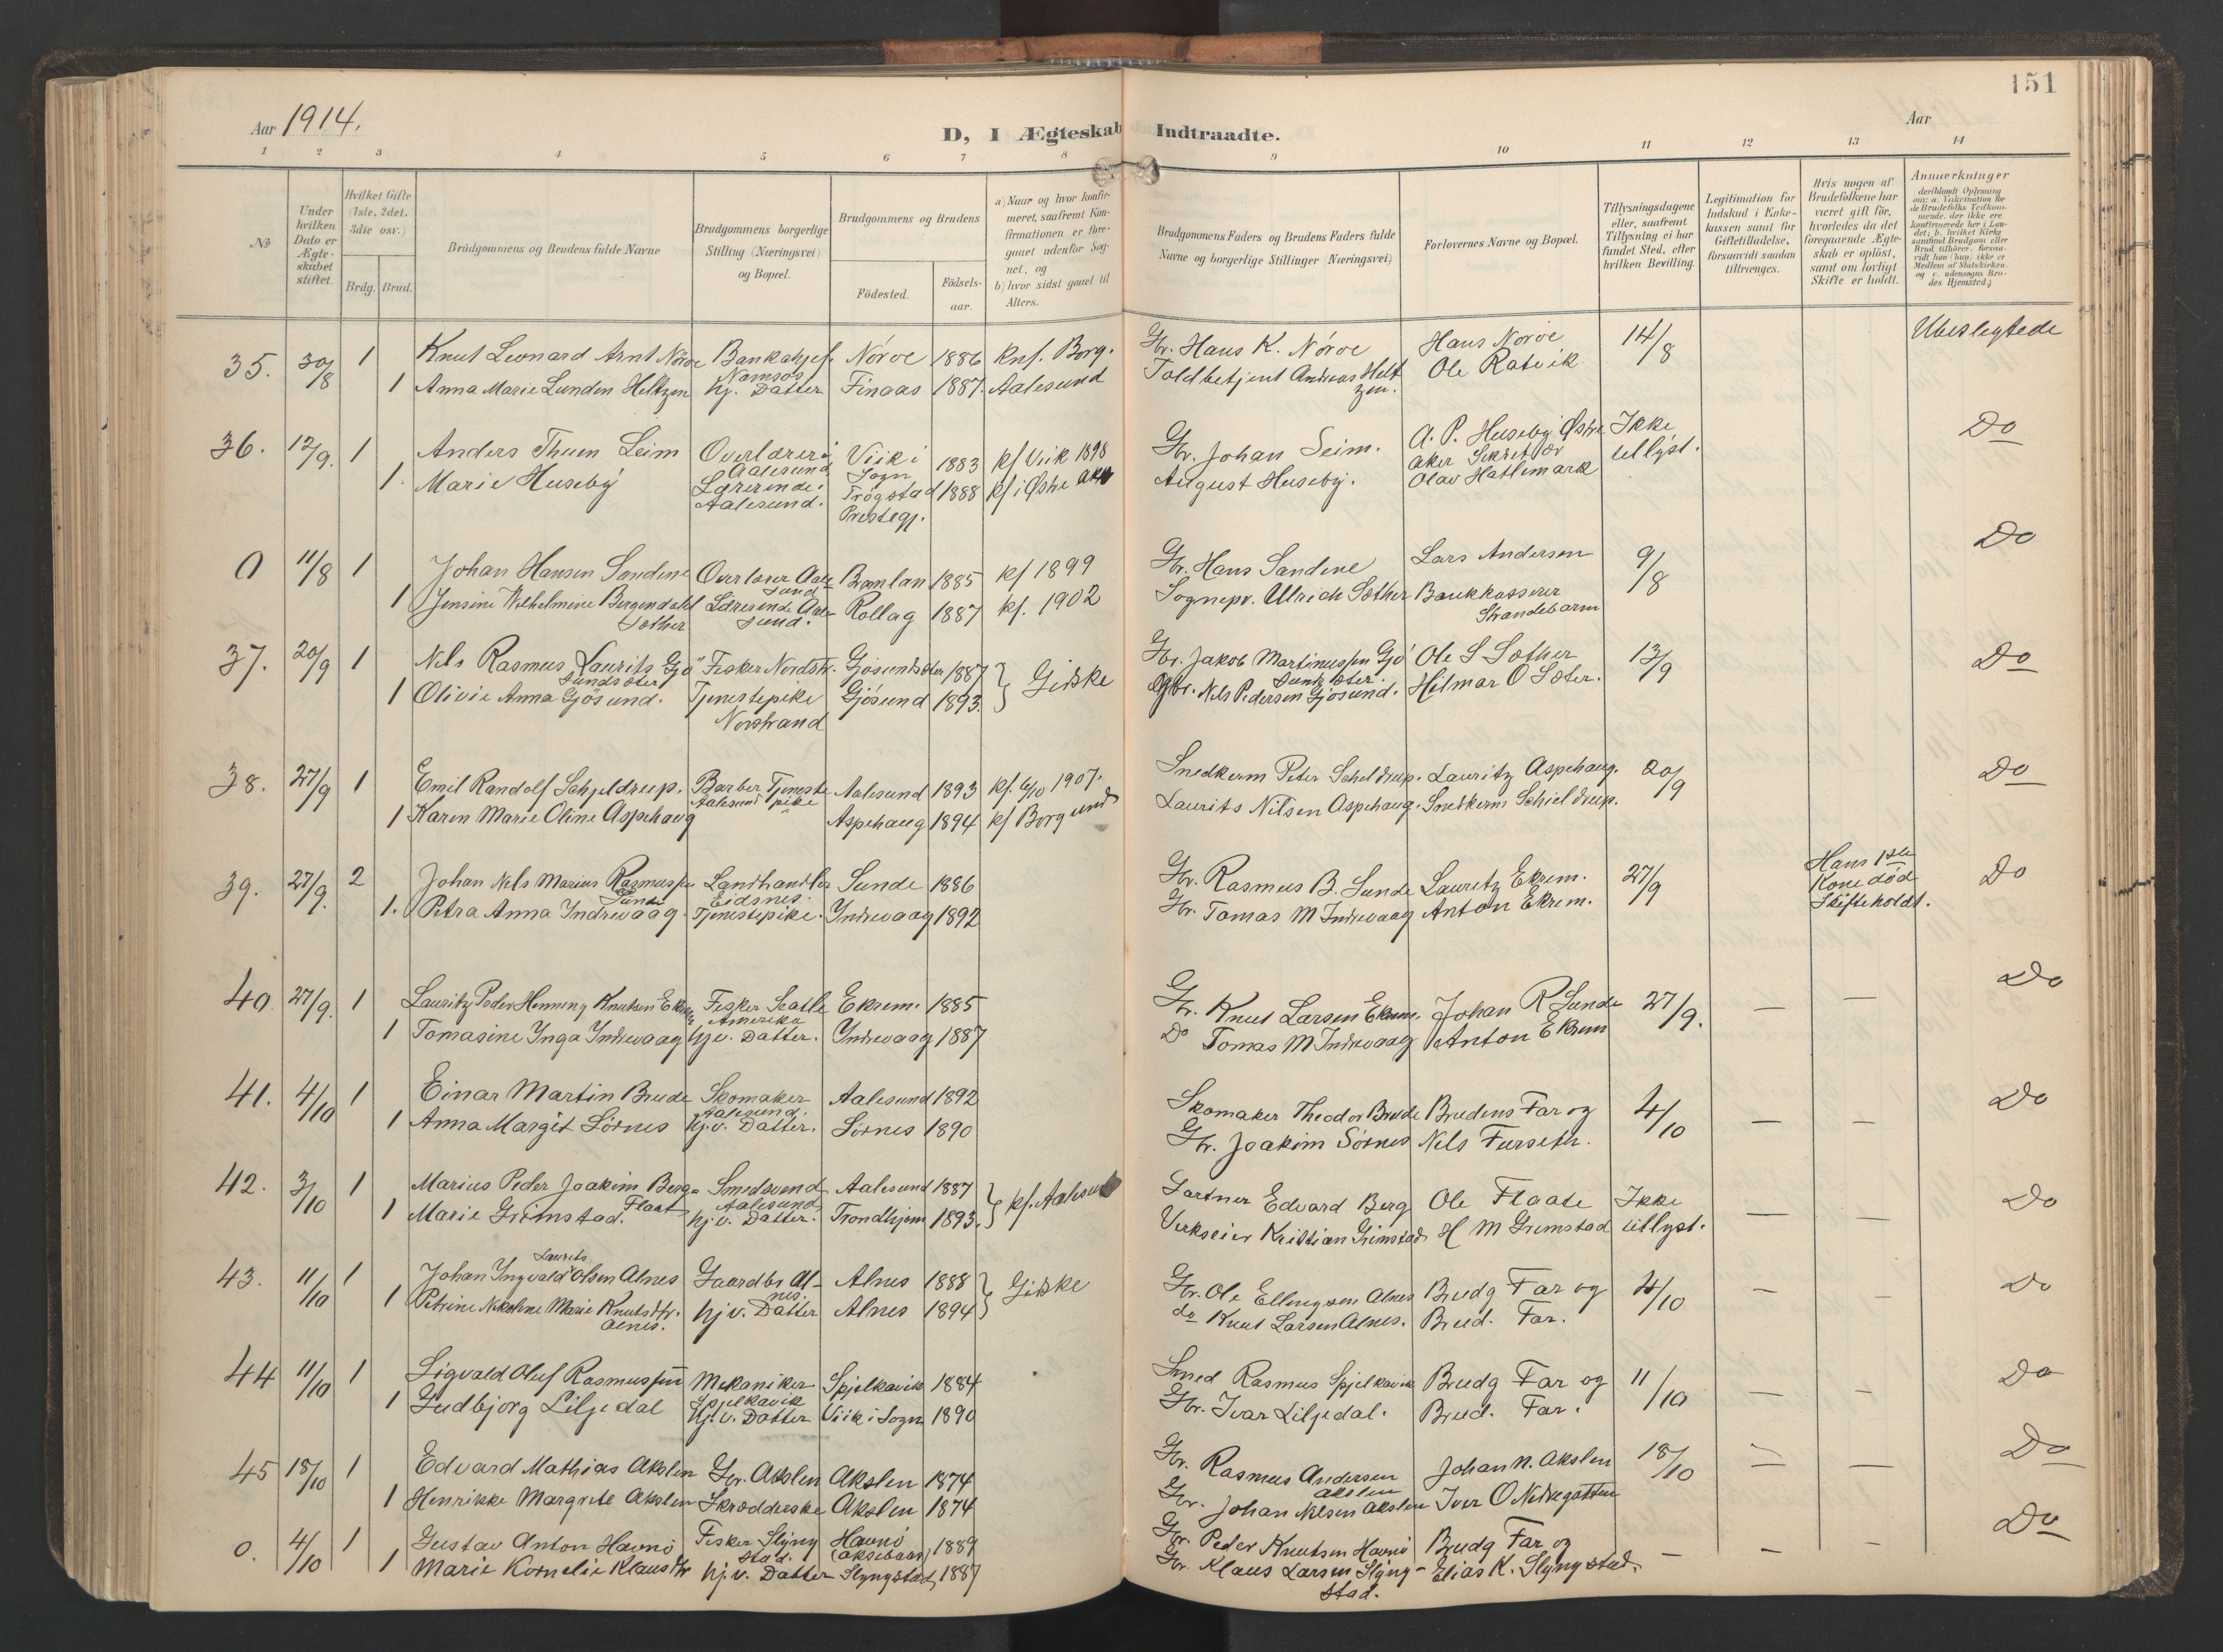 151
Aar 1914.
D, I Ægteskab Indtraadte.
Aar
1 2 3 4 5 6 7 8 9 10 11 12 13 14
No
Under hvilken Dato er Ægteskabet stiftet.
Hvilket Gifte (1ste, 2det, 3die osv.)
Brdg. Brud.
Brudgommens og Brudens fulde Navne
Brudgommens borgerlige Stilling (Næringsvei) og Bopæl.
Brudgommens og Brudens
Födested.
Födsels-aar.
a) Naar og hvor konfirmeret, saafremt Konfirmationen er foregaaet udenfor Sognet, og
b) hvor sidst gaaet til Alters.
Brudgommens Faders og Brudens Faders fulde Navne og borgerlige Stillinger (Næringsvei)
Forlovernes Navne og Bopæl.
Tillysningsdagene eller, saafremt Tillysning ei har fundet Sted, efter hvilken Bevilling.
Legitimation for Indskud i Enkekassen samt for Giftetilladelse, forsaavidt saadan tiltrænges.
Hvis nogen af Brudefolkene har været gift før, hvorledes da det foregaaende Ægteskab er opløst, samt om lovligt Skifte er holdt.
Anmærkninger
35. 30/8 1 Knut Leonard Arnt Nörve Bankchef Nörve 1886 Knf. Borg. Gbr. Hans K. Nörve Hans Nörve 14/8 Ubeslegtede
Namsos
1 Anna Marie Lunden Heltzen hj. Datter Finaas 1887. Aalesund Toldbetjent Andreas Heltzen. Ole Ratvik
36. 12/9. 1 Anders Thum Seim Overlærer i Viik i 1883 kf Viik 1898 Gbr. Johan Seim. A. P. Huseby Østre Ikke Do
Aalesund Sogn aker Sekretær utlyst.
1. Marie Huseby Lærerinde i Trögstad 1888 kf i Østre Aker August Huseby. Olav Hatlemark
Aalesund. Prestegj.
0 11/8 1 Johan Hansen Sandene Overlærer Aalesund 1885 kf 1899 Gbr. Hans Sandene Lars Andersen 9/8 Do
1 Jensine Wilhelmine Bergendahl Sæther Lærerinde Aalesund. Rollag 1887 kf. 1902 Sognepr. Ullrich Sæther Bankkasserer
Strandebarm
37. 20/9 1 Nils Rasmus Laurits Gjösundsæter Fisker Nordstr. Gjösundsæter 1887 } Giske Gbr. Jakob Martinussen Gjösundsæter. Ole S Sæther 13/9 Do
1 Olivie Anna Gjösund. Tjenestepike Gjösund 1893. Gbr. Nels Pedersen Gjösund. Hilmar O Sæter.
Norstrand
38. 27/9 1 Emil Randolf Schjeldrup. Barber Tjeneste Aalesund 1893 kf. 6/10 1907. Snedkerm Peter Scheldrup. Lauritz Aspehaug. 20/9 Do
Aalesund pike
1 Karen Marie Oline Aspehaug Aspehaug 1894 kf Borgund Laurits Nilsen Aspehaug. Snedkerm Schieldrup.
39. 27/9. 2 Johan Nels Marius Rasmussen Sunde Landhandler Sunde 1886 Gbr. Rasmus B. Sunde Lauritz Ekrem. 27/9 Hans 1ste Kone död Skifte holdt. Do
Eidsnes.
1. Petra Anna Indrevaag. Tjenestepike. Yndrevaag 1892 Gbr. Tomas M Indrevaag Anton Ekrem.
40 27/9. 1 Lauritz Peder Henning Knutsen Ekrem Fisker Seatle Ekrem. 1885 Gbr. Knut Larsen Ekrem. Johan R Sunde 27/9. — — Do
Amerika
1 Tomasine Inga Indrevaag hjv. Datter. Yndrevaag 1887 Do Tomas M Indrevaag Anton Ekrem
41. 4/10 1 Einar Martin Brude Skomaker Aalesund 1892 Skomaker Theodor Brude Brudens Far og 4/10 — — Do
Aalesund.
1 Anna Margit Sörnes hj.v. Datter. Sörnes 1890 Gbr. Joakim Sörnes Nils Furseth.
42. 3/10 1 Marius Peder Joakim Berg Smedsvend Aalesund 1887 } kf. Aalesund Gartner Edvard Berg Ole Flaate Ikke — — Do
Aalesund
1 Marie Grimstad. Flaat hj.v. Datter. Trondhjem 1893. Verkseier Kristian Grimstad H M Grimstad utlyst.
43. 11/10 1 Johan Ingvald Laurits Olsen Alnes Gaardbr Alnes. Alnes 1888 } Giske Gbr. Ole Ellingsen Alnes Brudg Far og 4/10 — — Do
1 Petrine Nikoline Marie Knutsdtr. Alnes. hjv. Datter Alnes 1894 do Knut Larsen Alnes. Brud. Far.
44 11/10 1 Sigvald Oluf Rasmussen Mekaniker Spjelkavik 1884 Smed Rasmus Spjelkavik Brudg Far og 11/10 — — Do
Spjelkavik
1 Gudbjörg Liljedal hj.v. Datter Viik i Sogn 1890 Gbr. Ivar Liljedal. Brud. Far.
45 18/10 1 Edvard Mathias Akslen Gbr. Akslen Akslen 1874 Gbr. Rasmus Andersen Akslen Johan N. Akslen 18/10 — — Do
1 Henrikke Margrete Akslen Skrædderske Akslen 1874 Gbr. Johan Nilsen Akslen Iver O Nedregotten
0. 4/10 1 Gustav Anton Havnö Fisker Slyngstad. Havnö 1889 Gbr. Peder Knutsen Havnö Brudg Far og — — — Do
1 Marie Kornelie Klausdtr hj.v. Datter Slyngstad 1887 Gbr. Klaus Larsen Slyngstad. Elias K. Slyngstad.